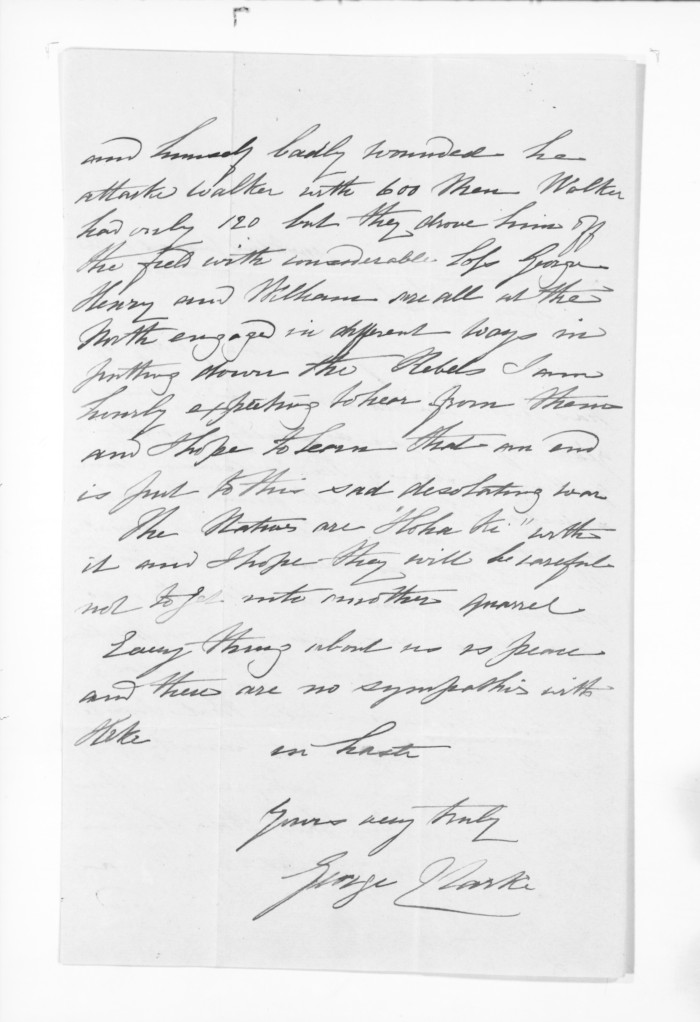 and himself badly wounded he
attackd Walker with 600 Men Walker
had only 120 but they drove him off
the field with considerable loss George
Henry and William are all at the
North engaged in different ways in
putting down the Rebels I am
hourly expecting to hear from them
and I hope to learn that an end
is put to this sad desolating war
The Natives are "Hoha Ki" with
it and I hope they will be careful
not to get into another quarrel
Every thing about us is peace
and there are no sympathis with
Heke
in haste
Yours very truly
George Clarke